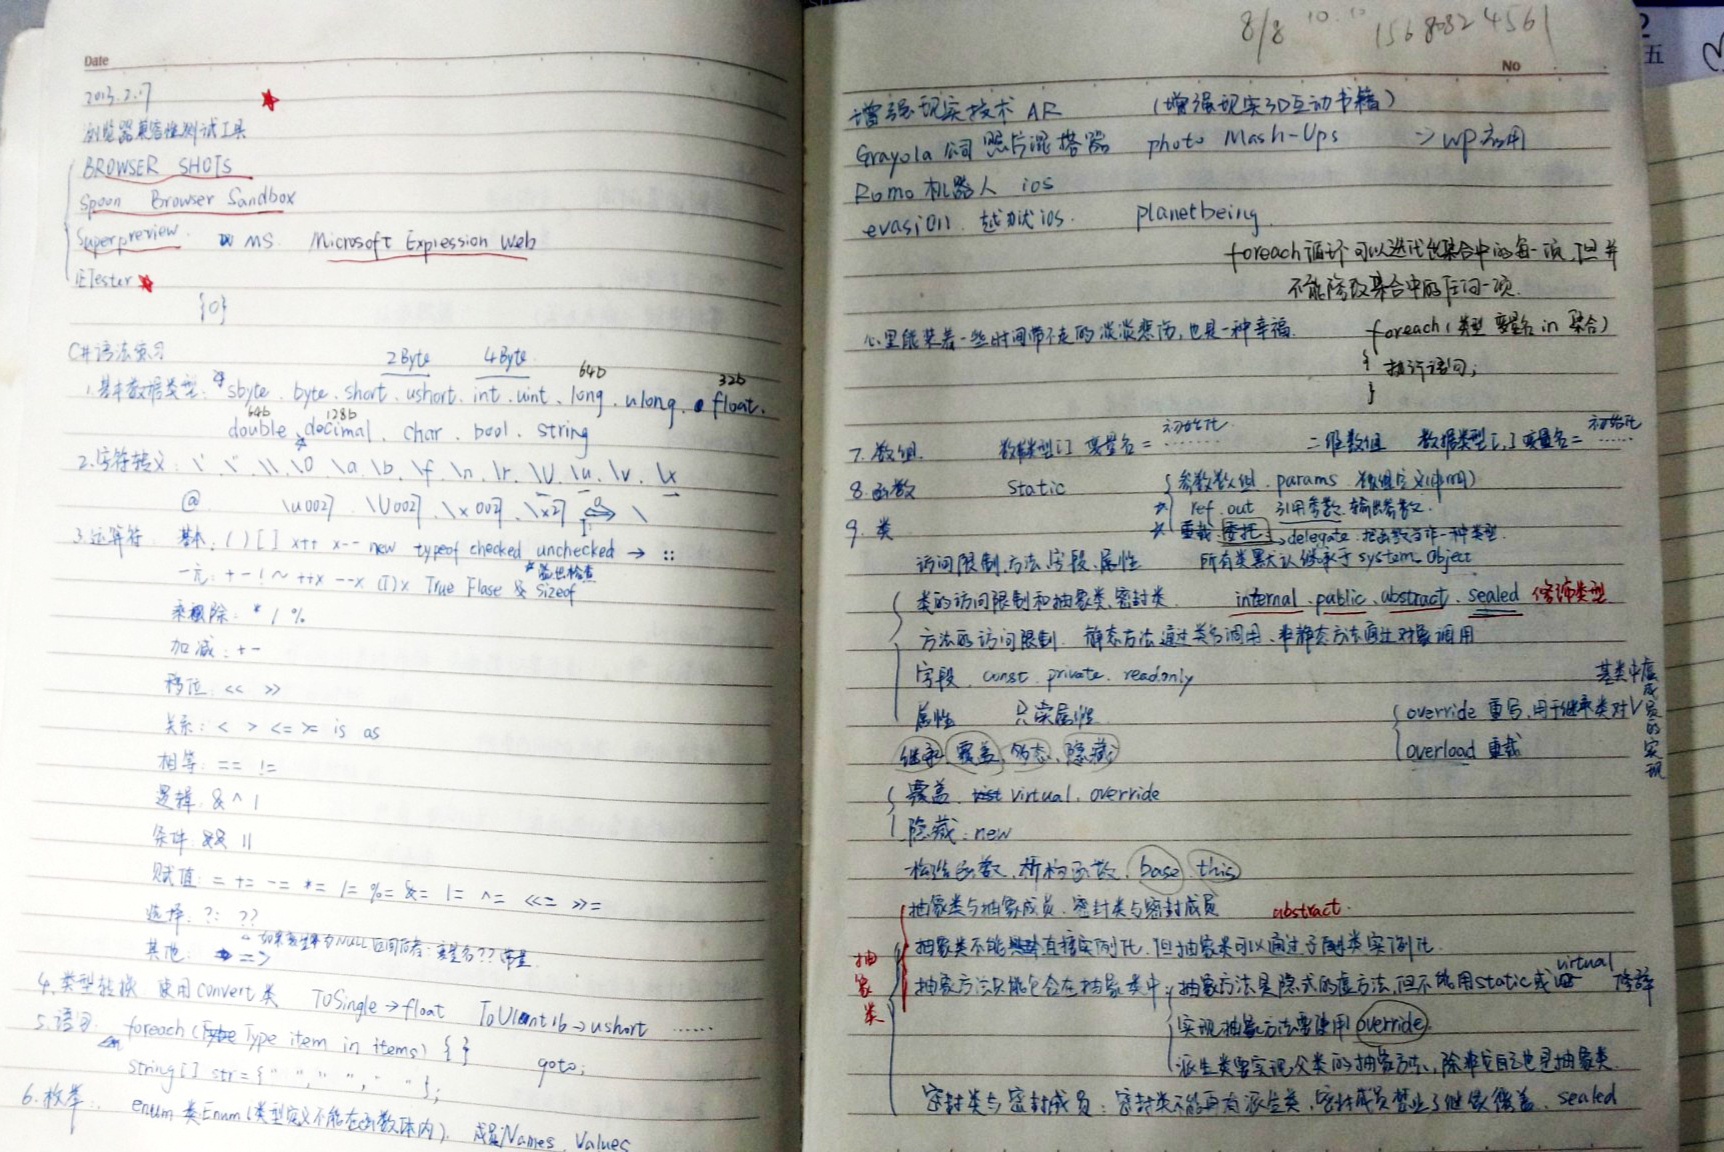 Date
2013.2.17
浏览器兼容性测试工具
BROWSER SHOTS
Spoon Browser Sandbox
Superpreview MS Microsoft Expression Web
IETester
{0}
C#语法复习
2Byte 4Byte 64b 32b
1.基本数据类型: sbyte. byte. short. ushort. int. uint. long. ulong. float.
64b 128b
double. decimal. char. bool. string
2.字符转义: \' \" \\ \0 \a \b \f \n \r \U \u \v \x
@ \u0027 \U0027 \x0027 \x27 \
3.运算符 基本: ( ) [ ] x++ x-- new typeof checked unchecked → ::
溢出检查
一元: + - ! ~ ++x --x (T)x True Flase & sizeof
乘除: * / %
加减: + -
移位: << >>
关系: < > <= >= is as
相等: == !=
逻辑: & ^ |
条件: && ||
赋值: = += -= *= /= %= &= |= ^= <<= >>=
选择: ?: ??
如果 NULL 返回后者: 变量名??常量
其他: =>
4.类型转换 使用Convert类 ToSingle→float ToUIant16→ushort ......
5.语句 foreach(Type item in items) { } goto;
string[] str={" "," "," "};
6.枚举: enum 类Enum(类型定义不能在函数体内). 成员Names. Values
8/8 10.10 15688824561
No
增强现实技术 AR (增强现实3D互动书籍)
Grayola公司 照片混搭器 photo Mash-Ups => wp应用
Romo机器人 ios
evasi0n. 越狱ios. planetbeing
foreach循环可以迭代集合中的每一项,但并
不能修改集合中的任何一项.
心里能装着一些时间带不走的淡淡悲伤,也是一种幸福.
foreach(类型 变量名 in 集合)
{
执行语句;
}
7.数组. 数据类型[] 变量名= 初始化...... 二维数组 数据类型[,] 变量名= 初始化......
8.函数 static { 参数数组. params.
ref.out 引用参数.输出参数.
9.类 重载.委托→delegate.把函数当作一种类型.
访问限制.方法.字段.属性 所有类默认继承于system.Object
类的访问限制和抽象类.密封类. internal.public.abstract.sealed 修饰类型
方法的访问限制. 静态方法通过类名调用.非静态方法通过对象调用
字段. const. private. readonly
属性 只读属性
继承.覆盖.多态.隐藏.
override 重写,用于继承类对基类中虚成员的实现
overload 重载
覆盖. virtual. override
隐藏: new
构造函数.析构函数. base. this
抽象类与抽象成员.密封类与密封成员 abstract.
抽象类
抽象类不能直接实例化.但抽象类可以通过子类实例化.
抽象方法只能包含在抽象类中; 抽象方法是隐式的虚方法,但不能用static或virtual修饰
实现抽象方法要使用override.
派生类要实现父类的抽象方法,除非它自己也是抽象类.
密封类与密封成员: 密封类不能再有派生类,密封成员禁止了继续覆盖. sealed
五